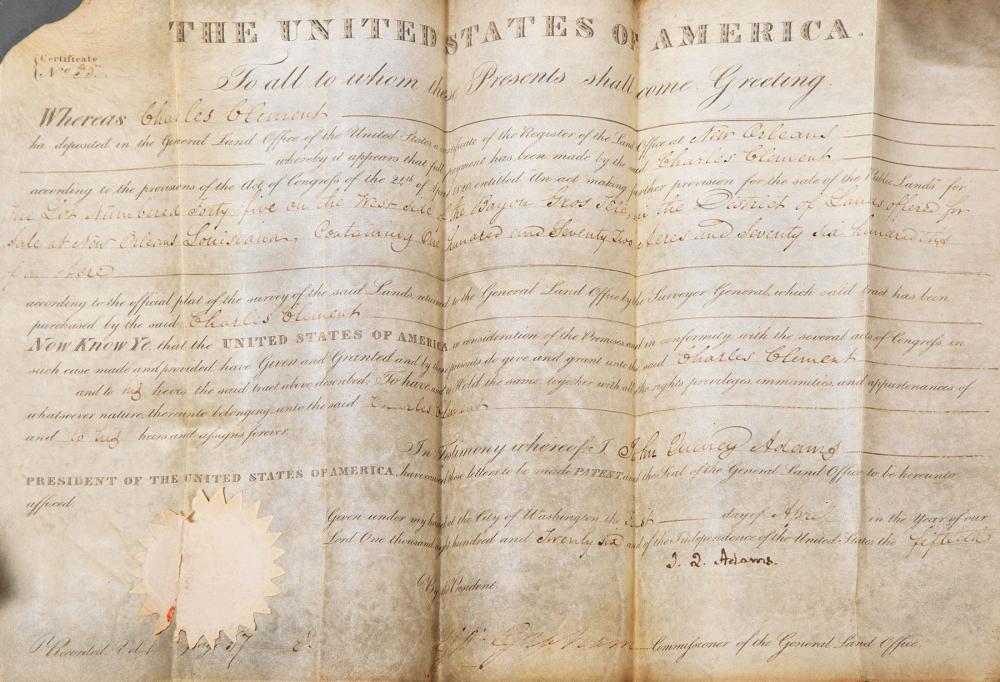 THE UNITED STATES OF AMERICA.
Certificate
No. 35
To all to whom these Presents shall come Greeting
Whereas Charles Clement
ha deposited in the General Land Office of the United States, a certificate of the Register of the Land Office at New Orleans
whereby it appears that full payment has been made by the said Charles Clement
according to the provisions of the Act of Congress of the 24th of April 1820, entitled An act making further provision for the sale of the Public Lands for
the Lot Numbered Forty five on the West side of the Bayou Gros Tete, in the District of Lands offered for
Sale at New Orleans Louisiana, Containing One hundred and Seventy Two Acres and Seventy six hundredths
of an Acre
according to the official plat of the survey of the said Lands, returned to the General Land Office by the Surveyor General, which said tract has been
purchased by the said Charles Clement
Now Know Ye, that the UNITED STATES OF AMERICA, in consideration of the Premises, and in conformity with the several acts of Congress, in
such case made and provided, have Given and Granted and by these presents do give and grant unto the said Charles Clement
and to his heirs the said tract above described: To have and to Hold the same, together with all the rights privileges, immunities, and appurtenances of
whatsoever nature, thereunto belonging, unto the said Charles Clement
and to his heirs and assigns forever.
In Testimony whereof, I John Quincy Adams
PRESIDENT OF THE UNITED STATES OF AMERICA, have caused these letters to be made PATENT, and the Seal of the General Land Office to be hereunto
affixed.
Given under my hand at the City of Washington the first day of April in the Year of our
Lord One thousand eight hundred and Twenty six and of the Independence of the United States the fiftieth
J. Q. Adams.
By the President.
Recorded, Vol. Page 37
Geo. Graham Commissioner of the General Land Office.